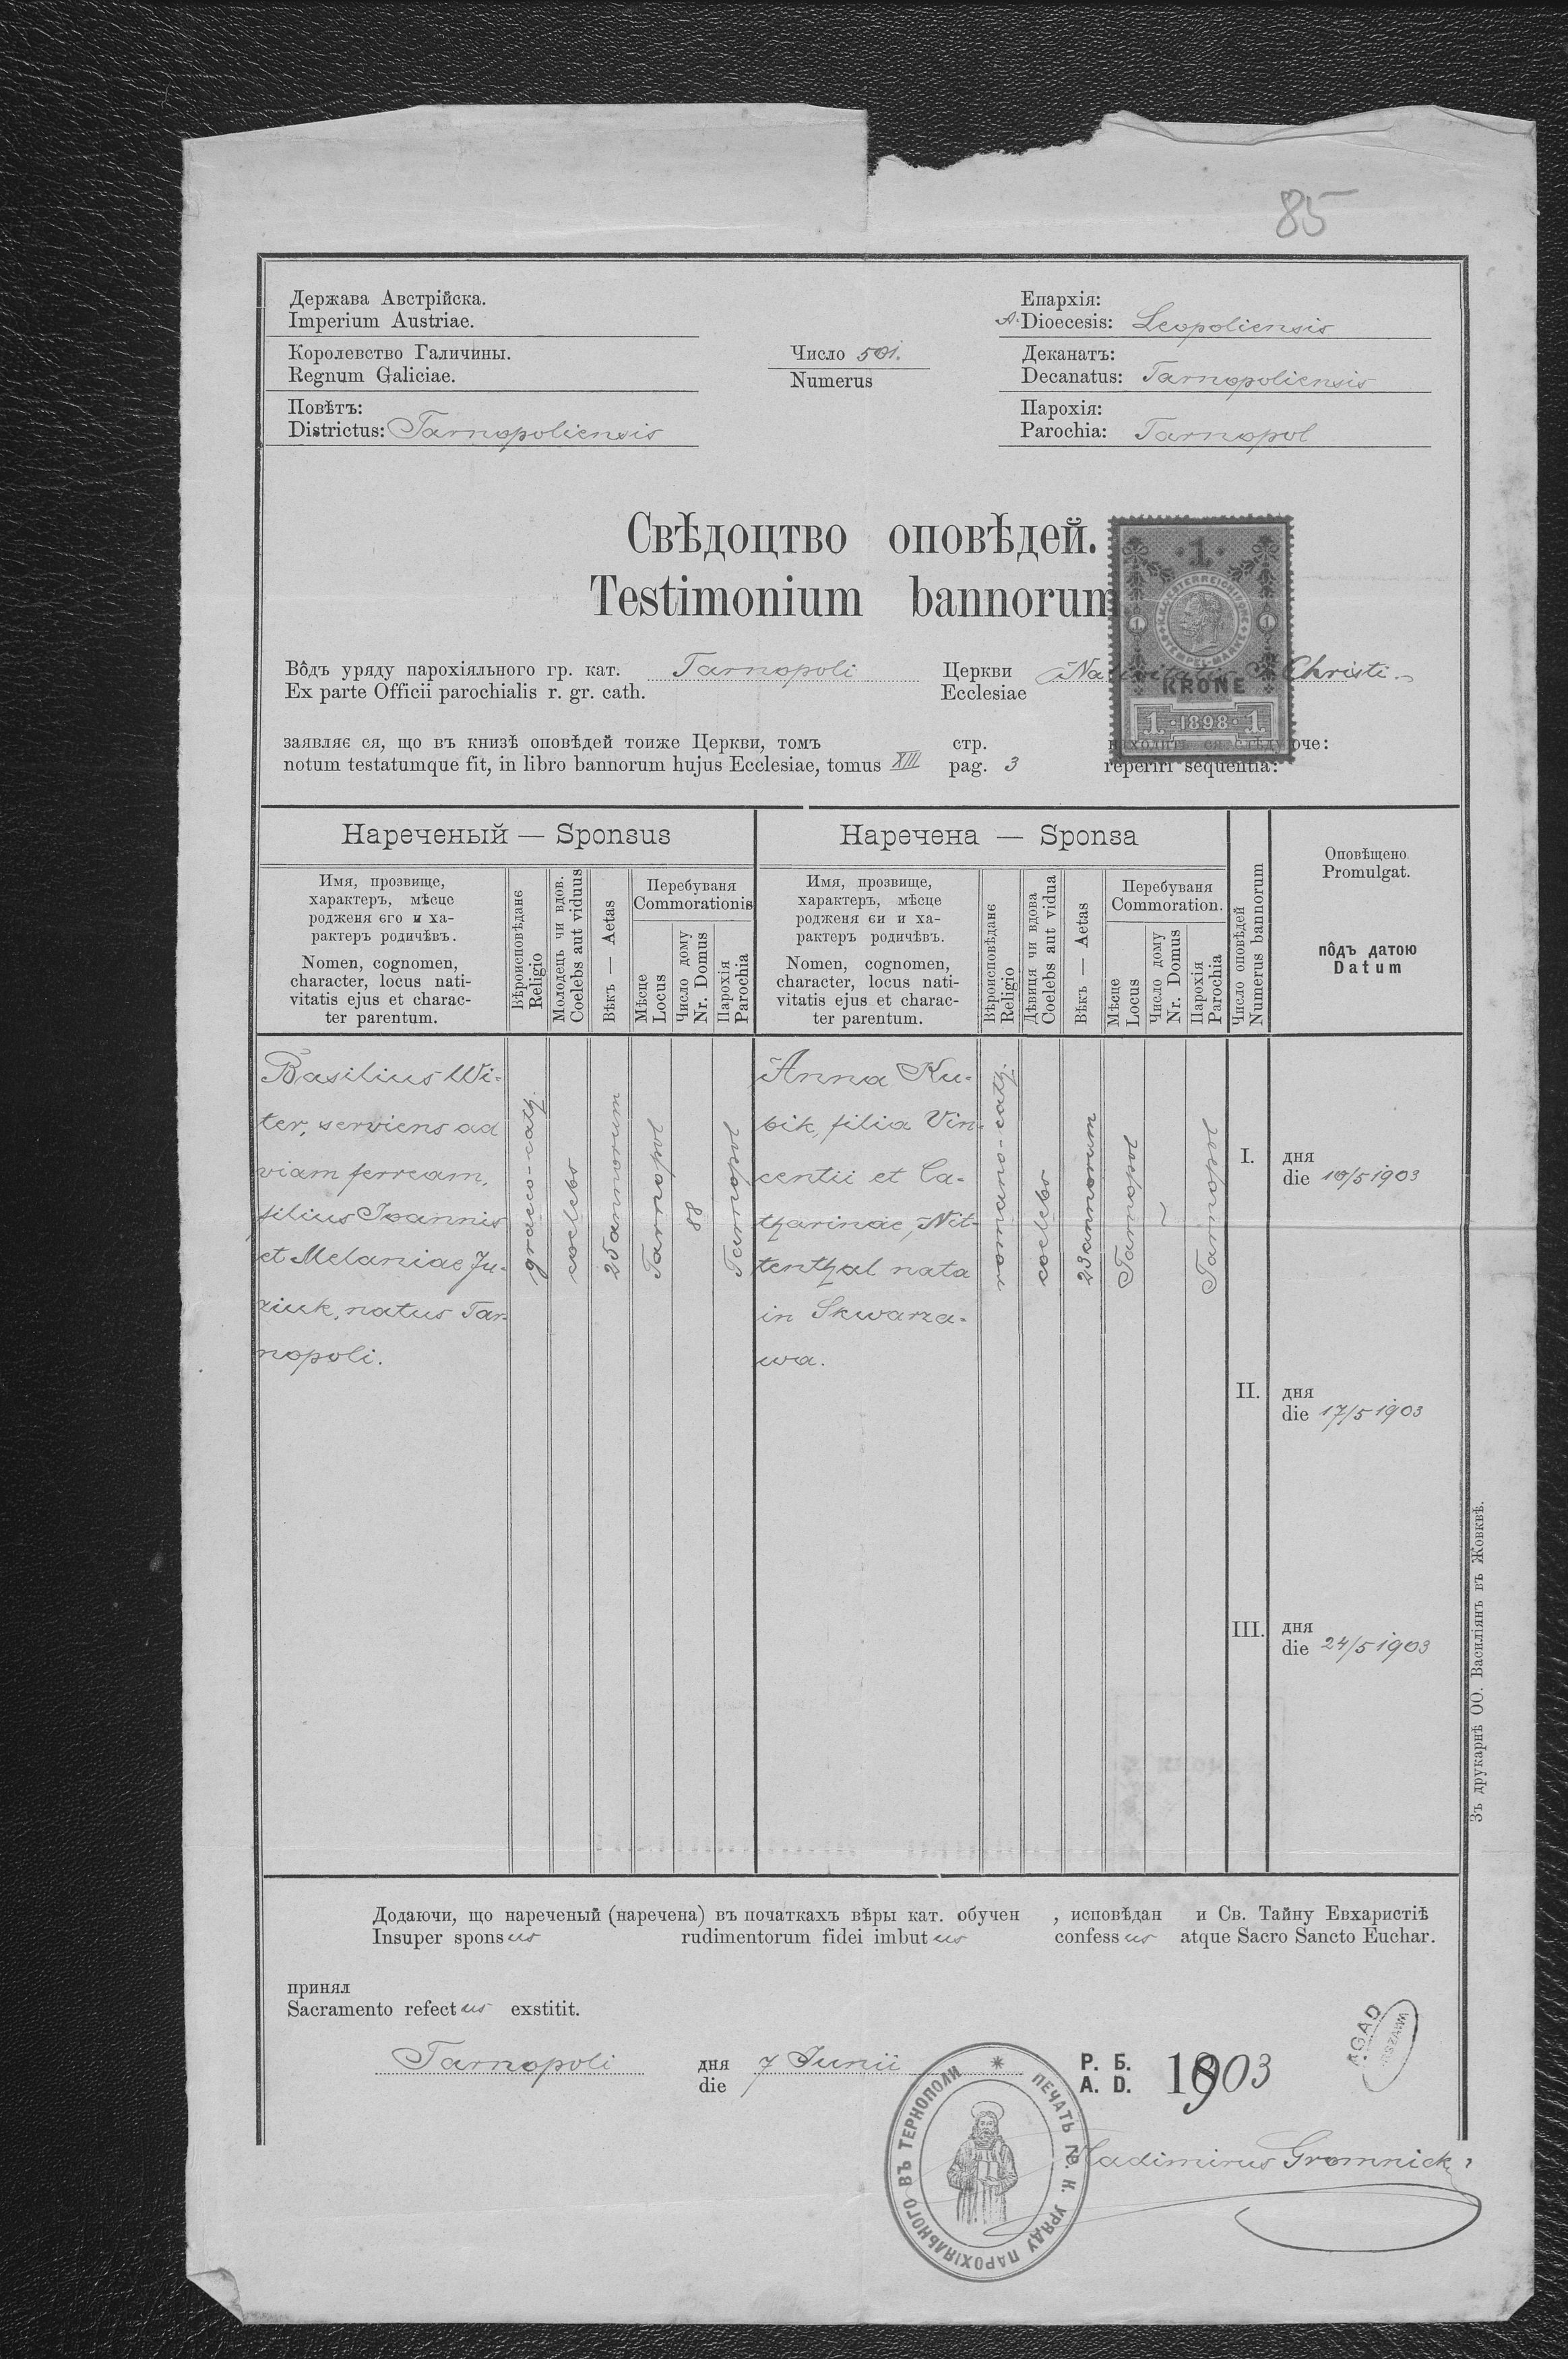 85
Держава Австрійска.
Imperium Austriae.
Королевство Галичины.
Regnum Galiciae.
Повѣтъ:
Districtus: Tarnopoliensis
Число 501.
Numerus
Епархія:
A. Dioecesis: Leopoliensis
Деканатъ:
Decanatus: Tarnopoliensis
Парохія:
Parochia: Tarnopol
Свѣдоцтво оповѣдей.
Testimonium bannorum
1
K. K. OESTERREICHISCHE STEMPEL-MARKE
1 1
KRONE
1 · 1898 · 1
Вôдъ уряду парохіяльного гр. кат. Tarnopoli Церкви Nativitatis Christi
Ex parte Officii parochialis r. gr. cath. Ecclesiae
заявляє ся, що въ книзѣ оповѣдей тоиже Церкви, томъ стр. находитъ ся слѣдуюче:
notum testatumque fit, in libro bannorum hujus Ecclesiae, tomus XIII pag. 3 reperiri sequentia:
Нареченый — Sponsus
Имя, прозвище,
характеръ, мѣсце
родженя єго и ха-
рактеръ родичѣвъ.
Nomen, cognomen,
character, locus nati-
vitatis ejus et charac-
ter parentum.
Вѣроисповѣданє
Religio
Молодець чи вдов.
Coelebs aut viduus
Вѣкъ — Aetas
Перебуваня
Commorationis
Мѣсце
Locus
Число дому
Nr. Domus
Парохія
Parochia
Наречена — Sponsa
Имя, прозвище,
характеръ, мѣсце
родженя єи и ха-
рактеръ родичѣвъ.
Nomen, cognomen,
character, locus nati-
vitatis ejus et charac-
ter parentum.
Вѣроисповѣданє
Religio
Дѣвиця чи вдова
Coelebs aut vidua
Вѣкъ — Aetas
Перебуваня
Commoration.
Мѣсце
Locus
Число дому
Nr. Domus
Парохія
Parochia
Число оповѣдей
Numerus bannorum
Оповѣщено
Promulgat.
пôдъ датою
Datum
Basilius Wi-
ter, serviens ad
viam ferream,
filius Joannis
et Melaniae Ju-
ziuk, natus Tar-
nopoli.
graeco-cath.
coelebs
25 annorum
Tarnopol
88
Tarnopol
Anna Ku-
bik, filia Vin-
centii et Ca-
tharinae, Nit-
tenthal nata
in Skwarza-
wa.
romano-cath.
coelebs
23 annorum
Tarnopol
~
Tarnopol
I. дня
die 10/5 1903
II. дня
die 17/5 1903
III. дня
die 24/5 1903
Додаючи, що нареченый (наречена) въ початкахъ вѣры кат. обучен , исповѣдан и Св. Тайну Евхаристіѣ
Insuper sponsus rudimentorum fidei imbutus confessus atque Sacro Sancto Euchar.
принял
Sacramento refectus exstitit.
Tarnopoli дня 7 Junii Р. Б. 1903
die A. D.
AGAD
WARSZAWA
ПЕЧАТЬ ГР. К. УРЯДУ ПАРОХІЯЛЬНОГО ВЪ ТЕРНОПОЛИ
Vladimirus Gromnicki
Зъ друкарнѣ ОО. Василіянъ въ Жовквѣ.